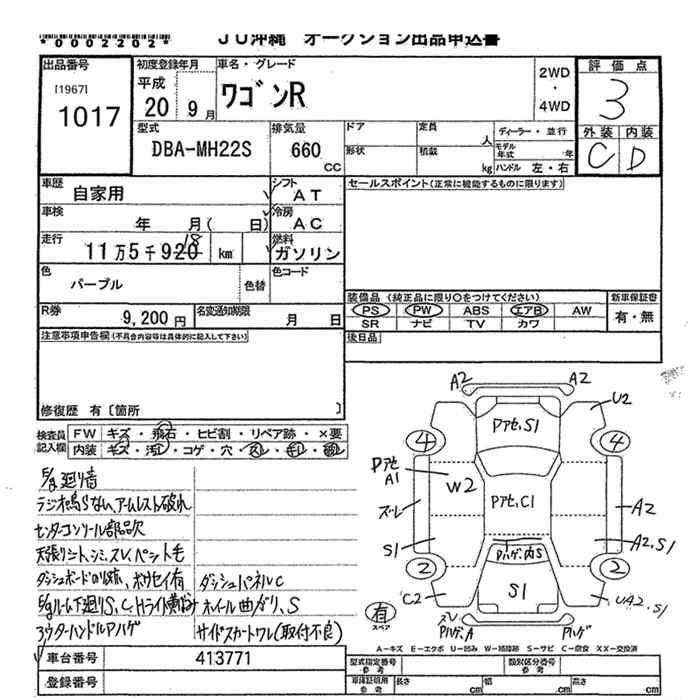 *0002202*
JU沖縄 オークション出品申込書
出品番号
[1967]
1017
初度登録年月
平成
20 9月
車名・グレード
ワゴンR
2WD
・
4WD
評価点
3
外装 内装
C D
型式
DBA-MH22S
排気量
660
CC
ドア
形状
定員
人
積載
kg
ディーラー・並行
モデル年式 年
ハンドル 左・右
車歴
自家用
シフト
AT
車検
年 月( 日)
冷房
AC
走行
11万5千920 km
18
燃料
ガソリン
色
パープル
色替
色コード
R券
9,200円
名変通知期限
月 日
セールスポイント(正常に機能するものに限ります)
装備品 (純正品に限り○をつけてください)
PS PW ABS エアB AW
SR ナビ TV カワ
新車保証書
有・無
後日品
注意事項申告欄(不具合内容等は具体的に記入して下さい)
修復歴 有〔箇所 〕
検査員記入欄
FW キズ・飛石・ヒビ割・リペア跡・×要
内装 キズ・汚レ・コゲ・穴・スレ・
E/g廻り音
ラジオ鳴らない、アームレスト破れ
センターコンソール部品欠
天張りシミ、スレ、ペット毛
ダッシュボード ダッシュパネルC
ホイール曲がり、S
アウターハンドルアハゲ サイドスカートワレ(取付不良)
A2 A2
U2
Pアセ、S1
4 4
Pアセ
A1
W2
Pアセ、C1
スレ
A2
S1
A2、S1
Pハゲ、内S
2 2
S1
C2
UA2、S1
有
スペア
スレ
Pハゲ、A
Pハゲ
A-キズ E-エクボ U-凹み W-補修跡 S-サビ C-腐食 XX-交換済
車台番号
413771
登録番号
型式指定番号
参考
類別区分番号
参考
車庫証明用
参考
長さ cm 幅 cm 高さ cm